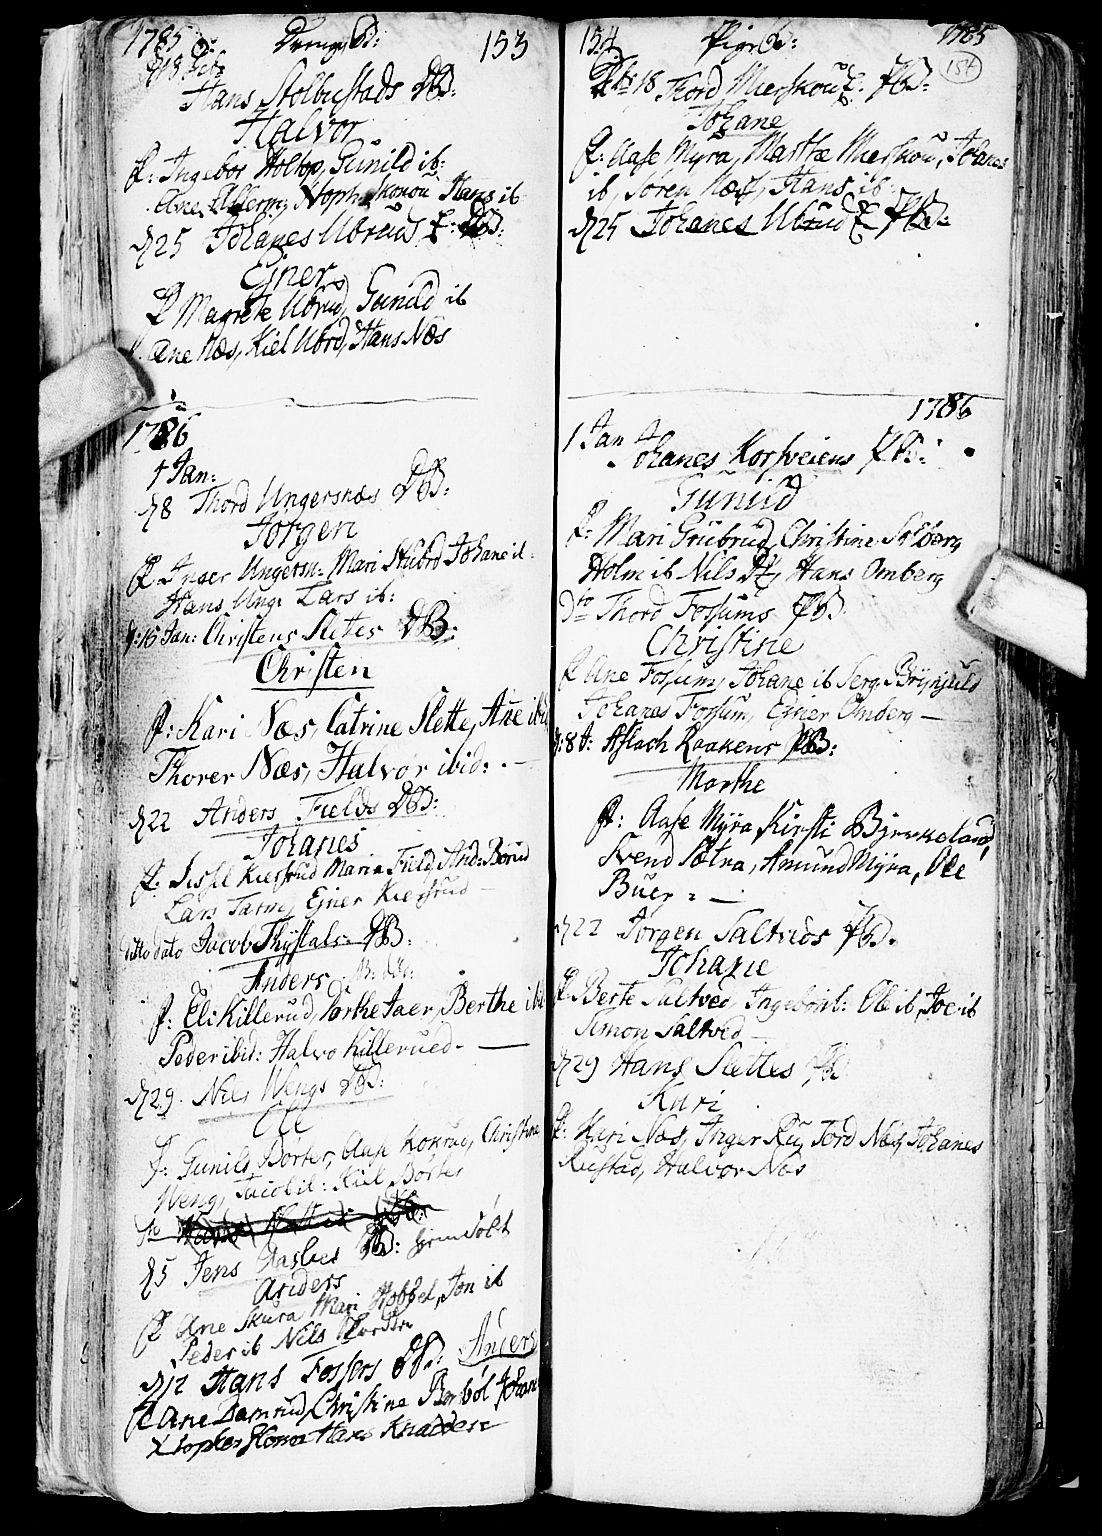 1785 Drenge B: 153
Hans Stolbustads DB:
Halvor
f: Ingebor Holtop, Gunild ib:
Ane Hans ib
d 25 Johanes Ubrud DB:
Ejner
f Magrete Ubrud, Gunild ib
Ane Næs, Kiel Ubrd, Hans Næs
1786
1 Jan:
d 8 Thord Ungersnæs DB:
Jørgen
f Inger Ungersn: Mari Stubrd Johane ib
Hans Ung: Lars ib:
d: 15 Jan: Christens Slettes DB:
Christen
f: Kari Næs, Catrine Slette, Ane ibid
Thorer Næs, Halvor ibid: . —
d 22 Anders Fields DB:
Johanes
f. Sissel Kiersrud Maria Field, And: Borud
Lars Tarm, Ejner Kiersrud —
ditto dato Jacob Thystals DB:
Anders
f: Eli Killerud, Jaer, Berthe ibi
Peder ibid: Halvo Killerued. —
d 29. Nils Wengs DB:
Ole
f: Gunild Børter, Aase Kokrud, Christine
Weng, Jacob ib: Kiel Børter
d 5 Jens Aasbes DB:
Anders
f Ane Skura Mari Hobbel, Jon ib
Peder ib Nils
d 12 Hans Fossers DB: Anders
f Ane Damrud, Christine Borbøl
Xtopher Hans
154 Pige B: 1785
154
18 Thord Mierskou PB:
Johane
f: Aase Myra, Marthe Mierskou, Johanes
ib, Søren Næs, Hans ib
d 25 Johanes Ubrud PB:
1786
1 Jan
Johanes Korsveiens PB:
Gunild
f: Mari Grubrud, Christine
Holm ib Nils Hans Omberg
Dto Thord Fossums PB.
Christine
f Ane Fossum, Johane ib Serg. Brynjuls
Johanes Fossum, Ejner Omberg —
d: 8 Aslach Raakens PB:
Marthe
f: Aase Myra, Kirsti Bjerkeland,
Svend Sætra, Amund Myra, Ole
Buer = —
d 22 Jørgen Saltveds PB.
Johane
f Berte Saltved Ingebor ib: Ole ib, Joe ib
Simon Saltved —
d 29 Hans Slettes PB
Kari
f: Kari Næs, Inger Ru, Tord Næs, Johanes
Rustad, Halvor Næs